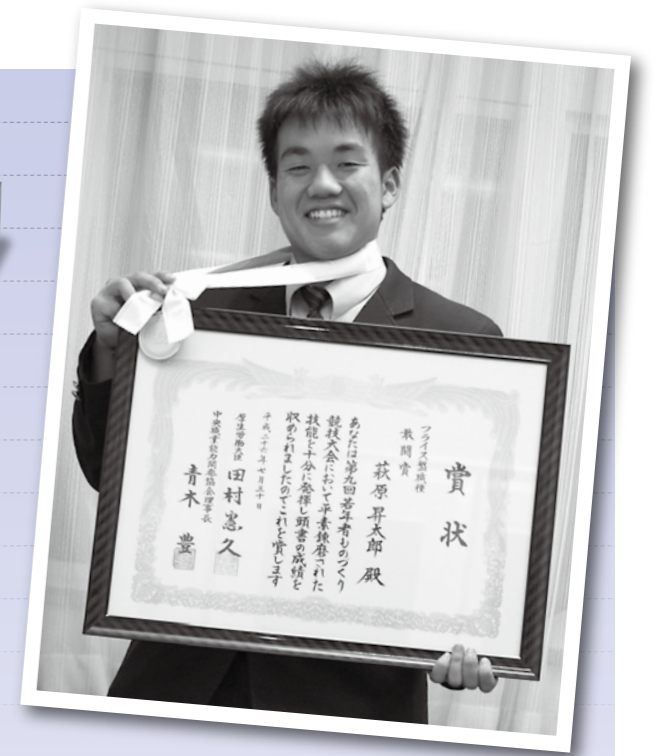 賞状
フライス盤職種
敢闘賞
萩原昇太郎 殿
あなたは第九回若年者ものづくり
競技大会において平素錬磨された
技能を十分に発揮し頭書の成績を
収められましたのでこれを賞します
平成二十六年七月三十日
厚生労働大臣 田村憲久
中央職業能力開発協会理事長
青木 豊